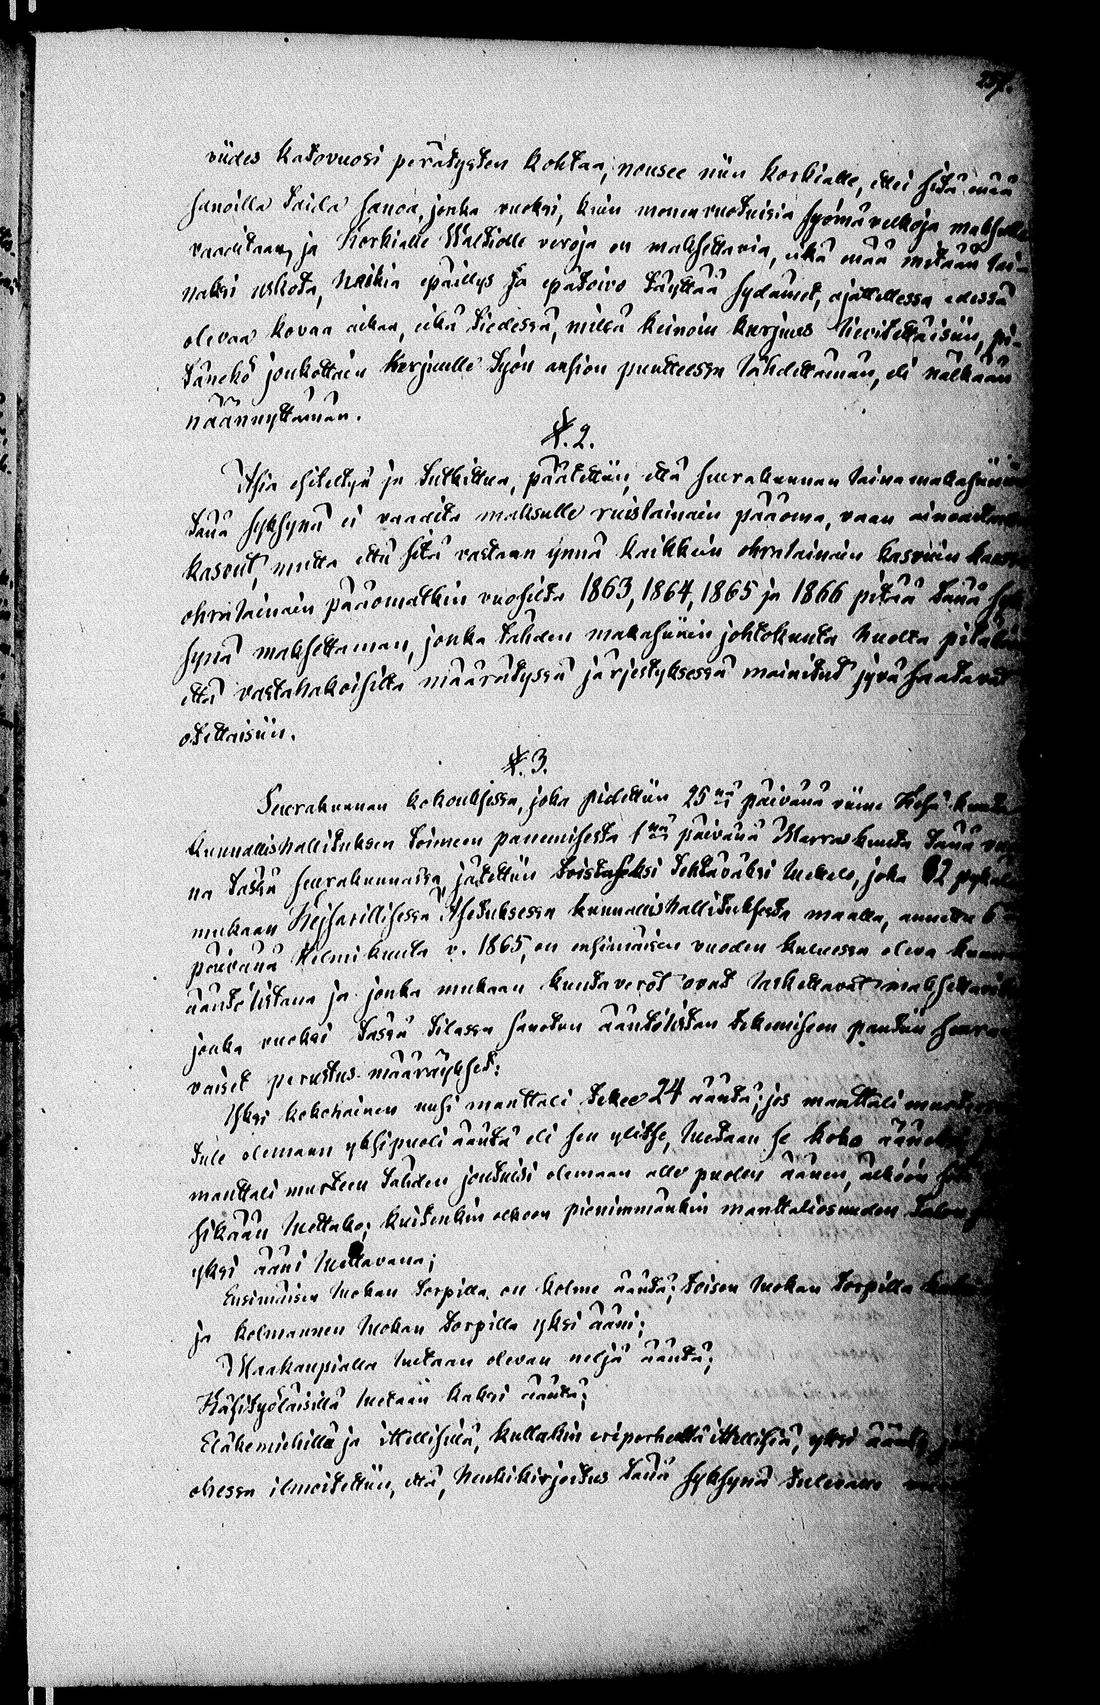 257.
viides katovuosi perätysten kohtaa, nousee niin korkialle, ettei sitä enää
sanoilla taida sanoa, jonka vuoksi, kuin monenvuotuisia syömävelkoja maksulle
vaaditaan, ja Korkialle Waltiolle veroja on maksettavia, eikä enää mitään lai-
naksi uskota, haikia epäillys ja epätoivo täyttää sydämet, ajatellessa edessä
olevaa kovaa aikaa, eikä tiedessä, millä keinoin kurjuus lievitettäisiin, pi-
täneekö joukottain kerjuulle työn ansion puutteessa lähdettämän, eli nälkään
näännyttämän.
§. 2.
Asia esiteltyä ja tutkittua, päätettiin, että seurakunnan lainamakasiiniin
tänä syksynä ei vaadita maksulle ruislainain pääoma, vaan ainoastaan
kasvut, mutta että sitä vastaan ynnä kaikkein ohralainain kasvuin kanssa
ohralainain pääomatkin vuosilta 1863, 1864, 1865 ja 1866 pitää tänä syk-
synä maksettaman, jonka tähden makasiinin johtokunta huolta pitäköön
että vastahakoisilta määrätyssä järjestyksessä mainitut jyväsaatavat
otettaisiin.
§. 3.
Seurakunnan kokouksessa, joka pidettiin 25nä päivänä viime Kesä-kuuta
kunnallishallituksen toimeen panemisesta 1nä päivänä Marraskuuta tänä vuon-
na tässä seurakunnassa, jätettiin toistaiseksi tehtäväksi luettelo, joka 82 pykälän
mukaan Keisarillisessa Asetuksessa kunnallishallituksesta maalla, annettu 6
päivänä Helmikuuta v. 1865, on ensimäisen vuoden kuluessa oleva kunnan
ääntölistana ja jonka mukaan kuntaverot ovat laskettavat maksettaviksi
jonka vuoksi tässä tilassa sanotun ääntölistan tekemiseen pantiin seuraa-
vaiset perustus-määräykset:
Yksi kokonainen uusi manttali tekee 24 ääntä; jos manttali murteen
tule olemaan yksipuoli ääntä eli sen ylitse, luetaan se koko ääneksi,
manttali murteen tähden joutuisi olemaan alle puolen äänen, älköön sitä
sikään luettako; kuitenkin olkoon pienimmänkin manttaliosuuden talon
yksi ääni luettavana;
Ensimäisen luokan torpilla on kolme ääntä; toisen luokan torpilla kaksi
ja kolmannen luokan torpilla yksi ääni;
Maakaupialla luetaan olevan neljä ääntä;
Käsityöläisillä luetaan kaksi ääntä;
Eläkemiehillä ja itellisillä, kullakin eriperhettä itellisiä, yksi ääni,
ohessa ilmoitettiin, että, henkikirjoitus tänä syksynä tulevalle